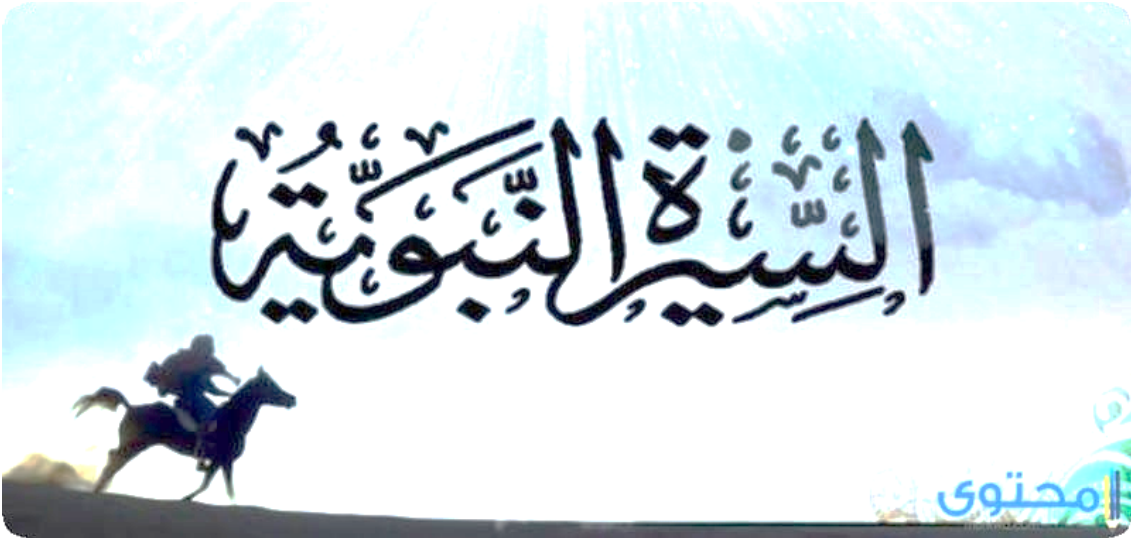 السِّيرة النَّبَويَّة
محتوى